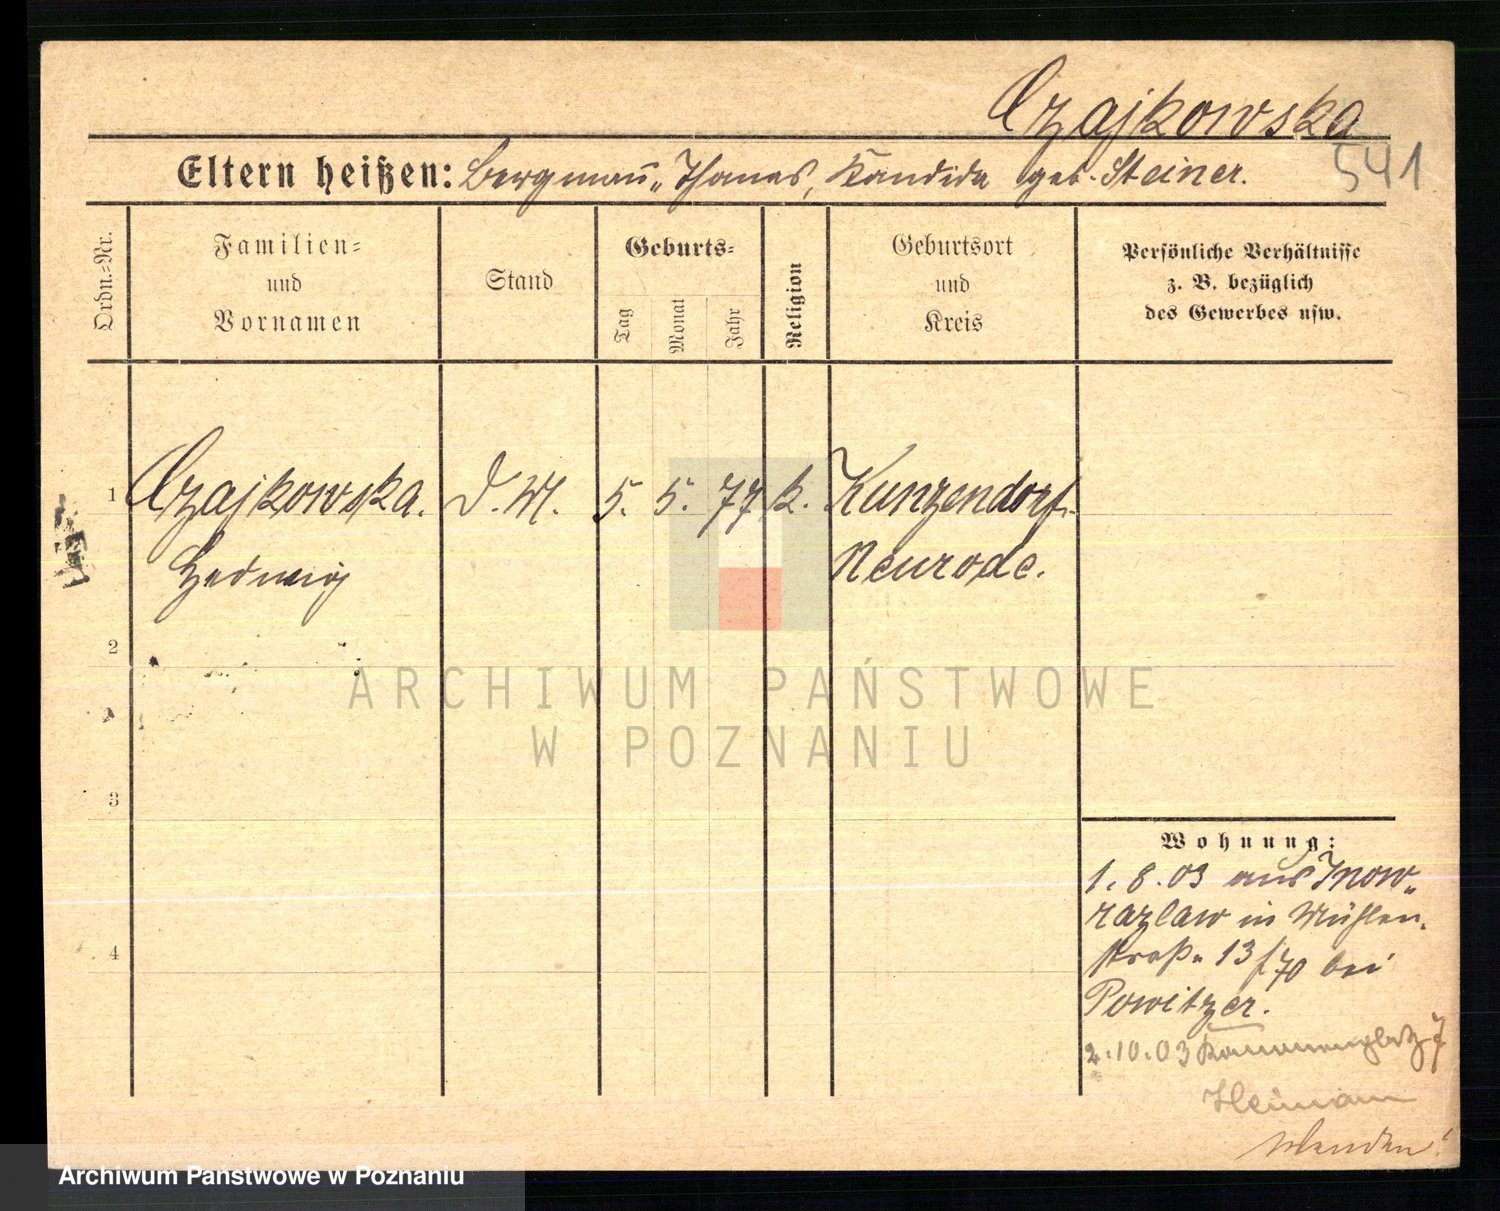 Czajkowska
541
Eltern heißen: Bergmann Thomas, Kandida geb. Steiner.
Ordn.=Nr.
Familien=
und
Vornamen
Stand
Geburts=
Tag
Monat
Jahr
Religion
Geburtsort
und
Kreis
Persönliche Verhältnisse
z. B. bezüglich
des Gewerbes usw.
1 Czajkowska. D. M. 5. 5. 77 k. Kunzendorf.
Hedwig Neurode.
2
3
4
ARCHIWUM PAŃSTWOWE
W POZNANIU
Wohnung:
1. 8. 03 aus Inow=
razlaw in Mühlen=
straße 13 f 70 bei
Powitzer.
2.10.03 7
Heimann
Wenden!
Archiwum Państwowe w Poznaniu